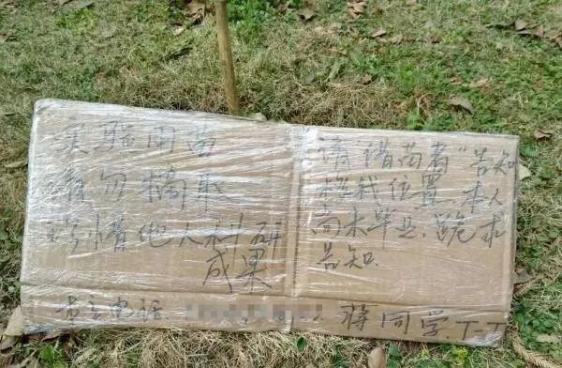 实验用苗
请勿摘取
珍惜他人科研
成果
请"借苗者"告知
移栽位置,本人
尚未毕业,跪求
告知.
蒋同学 T-T